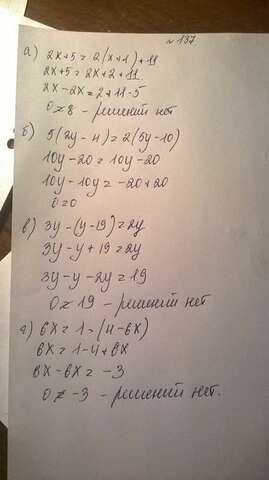 № 137
а) 2х+5=2(х+1)+11
2х+5=2х+2+11
2х-2х=2+11-5
0≠8 - решений нет
б) 5(2у-4)=2(5у-10)
10у-20=10у-20
10у-10у=-20+20
0=0
в) 3у-(у-19)=2у
3у-у+19=2у
3у-у-2у=19
0≠19 - решений нет
г) 6х=1-(4-6х)
6х=1-4+6х
6х-6х=-3
0≠-3 - решений нет.